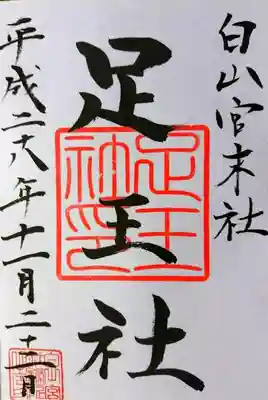 白山宮末社
足王社
平成二十八年十一月二十二日
足王
社印